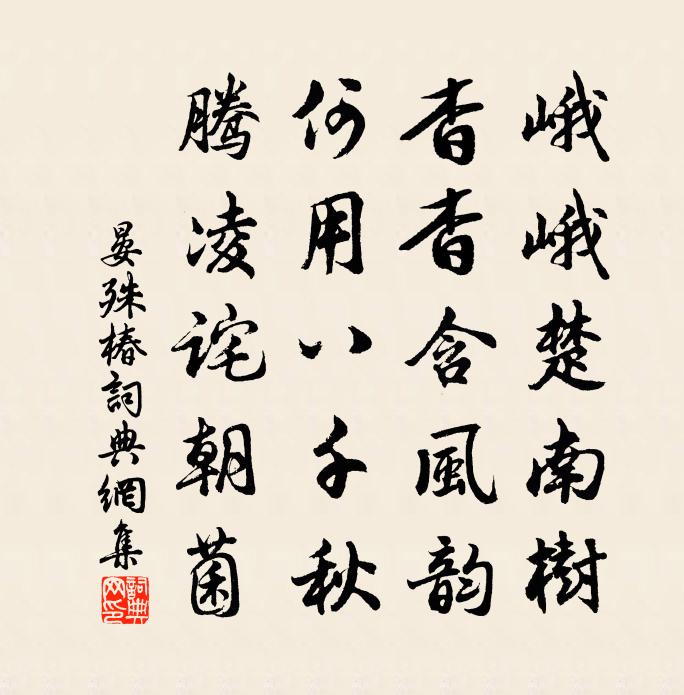 峨峨楚南樹
杳杳含風韵
何用八千秋
騰凌詫朝菌
晏殊椿詞典網集
詞典
网印